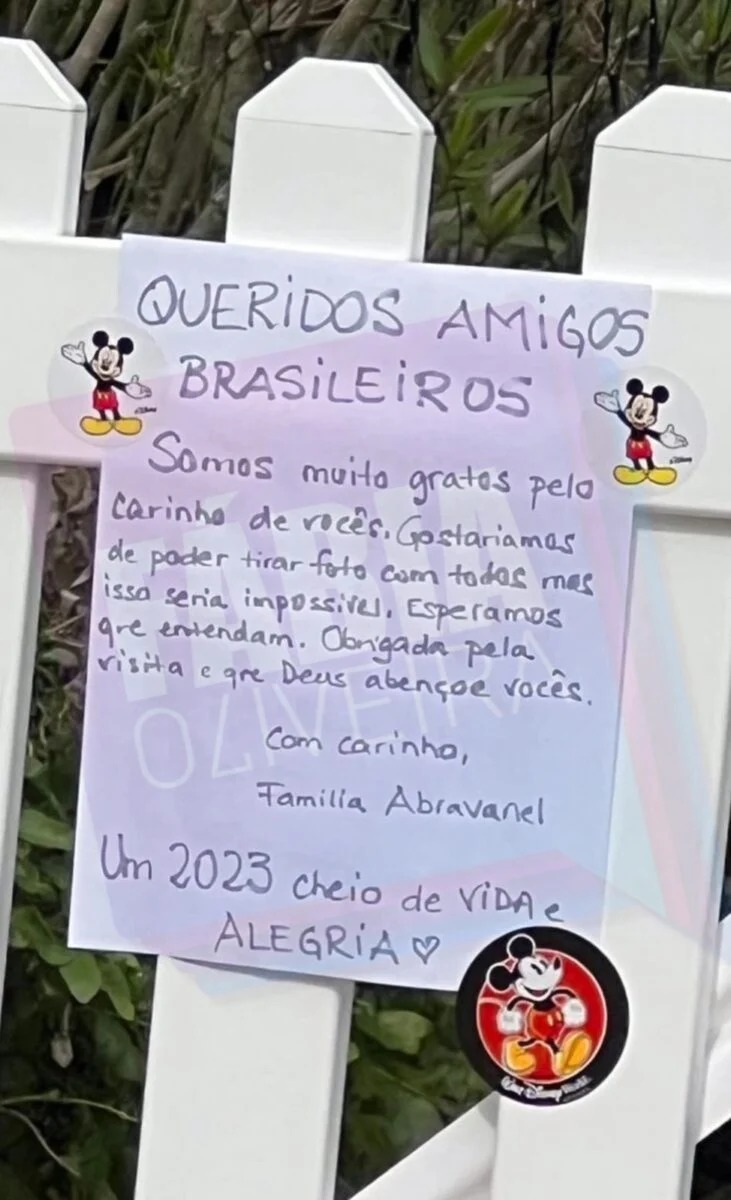 QUERIDOS AMIGOS
BRASILEIROS
Somos muito gratos pelo
carinho de vocês. Gostariamos
de poder tirar foto com todos mas
isso seria impossivel. Esperamos
que entendam. Obrigada pela
visita e que Deus abençoe vocês.
Com carinho,
Familia Abravanel
Um 2023 cheio de VIDA e
ALEGRIA ♡
FÁBIA
OLIVEIRA
Walt Disney World